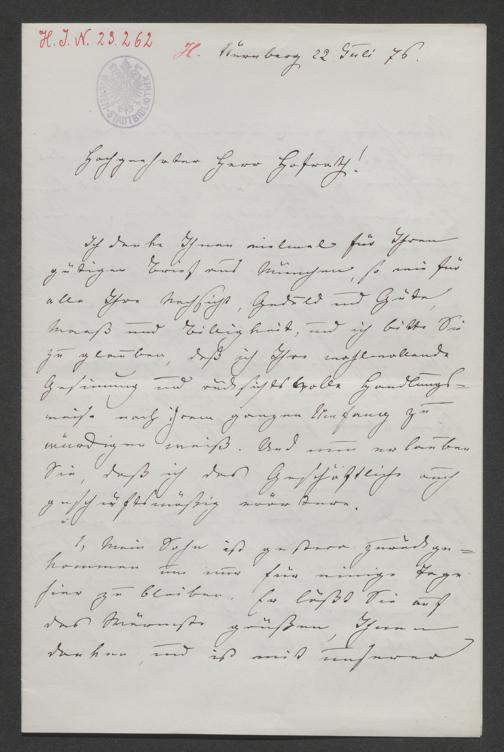 H. I. N. 23.262
H. Nürnberg 22 Juli 76.
WIENER STADTBIBLIOTHEK
Hochgeehrter Herr Hofrath!
Ich danke Ihnen vielmal für Ihren
gütigen Brief aus München, so wie für
alle Ihre Nachsicht, Geduld und Güte,
und Billigkeit, und ich bitte Sie
zu glauben, daß ich Ihre wohlwollende
Gesinnung und rücksichtsvolle Handlungs=
weise nach ihrem ganzen Umfang zu
würdigen weiß. Und nun erlauben
Sie, daß ich das Geschäftliche auch
geschäftsmäßig erörtere.
1, Mein Sohn ist gestern zurückge=
kommen um nur für einige Tage
hier zu bleiben. Er läßt Sie auf
das Wärmste grüßen, Ihnen
danken, und ist mit unserer